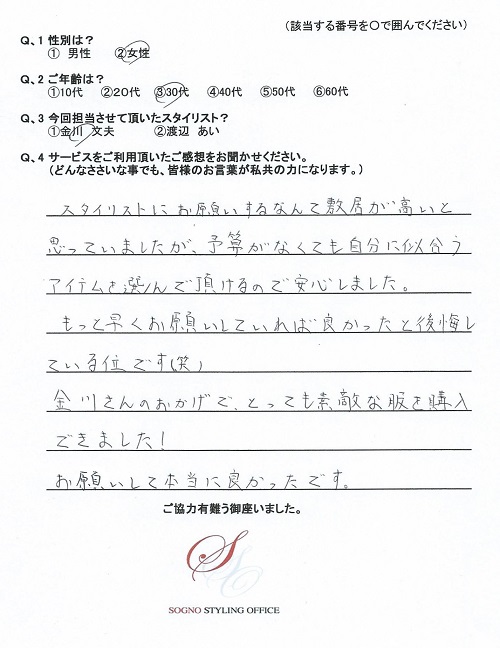 (該当する番号を〇で囲んでください)
Q、1 性別は?
① 男性 ②女性
Q、2 ご年齢は?
①10代 ②20代 ③30代 ④40代 ⑤50代 ⑥60代
Q、3 今回担当させて頂いたスタイリスト?
①金川 文夫 ②渡辺 あい
Q、4 サービスをご利用頂いたご感想をお聞かせください。
(どんなささいな事でも、皆様のお言葉が私共の力になります。)
スタイリストにお願いするなんて敷居が高いと
思っていましたが、予算がなくても自分に似合う
アイテムを選んで頂けるので安心しました。
もっと早くお願いしていれば良かったと後悔し
ている位です(笑)
金川さんのおかげで、とっても素敵な服を購入
できました!
お願いして本当に良かったです。
ご協力有難う御座いました。
SOGNO STYLING OFFICE